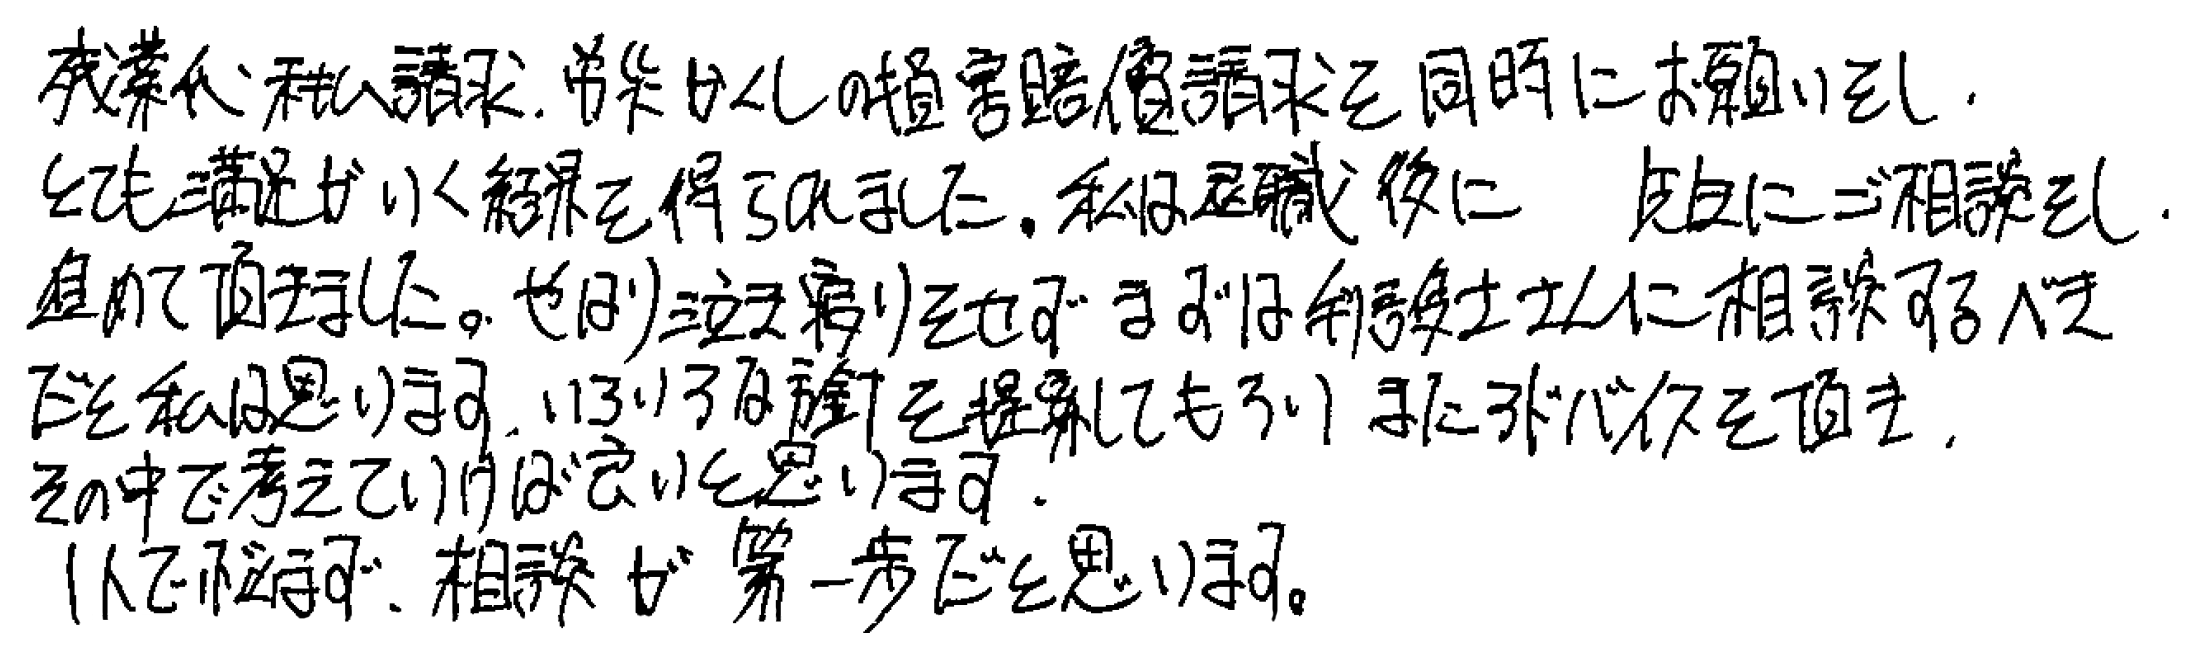 残業代未払い請求、労災かくしの損害賠償請求を同時にお願いをし、
とても満足がいく結果を得られました。私は退職後に 先生にご相談をし、
進めて頂きました。やはり泣き寝りをせず まずは弁護士さんに相談するべき
だと私は思います、いろいろな方針を提案してもらい またアドバイスを頂き、
その中で考えていけば良いと思います、
1人で悩まず、相談が第一歩だと思います。